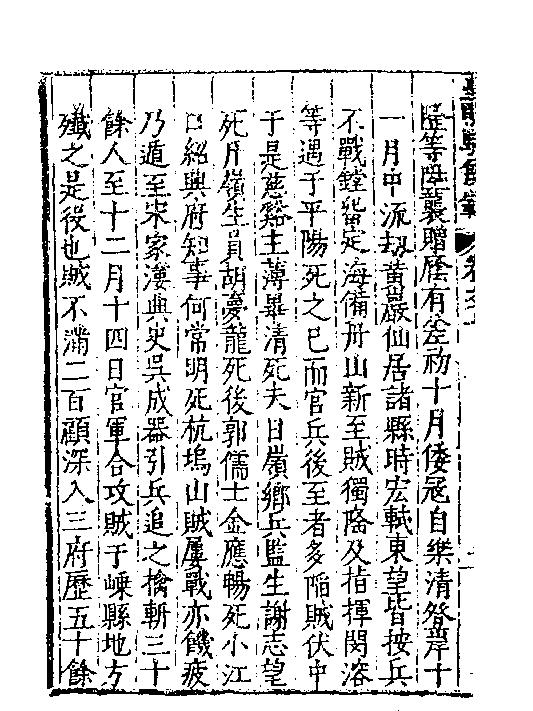 皇明馭倭錄 卷之
等陞襲贈廕有差初十月倭寇自樂清登岸十
一月中流刼黃巖仙居諸縣時宏軾東望皆按兵
不戰鏜皆定海備舟山新至賊獨及指揮閔溶
等遇于平陽死之已而官兵後至者多陷賊伏中
于是慈谿主薄畢清死夫日嶺鄉兵監生謝志望
死斤嶺生員胡夢龍死後郭儒士金應暢死小江
口紹興府知事何常明死杭塢山賊屢戰亦饑疲
乃遁至宋家漊典史吳成器引兵追之擒斬三十
餘人至十二月十四日官軍合攻賊于嵊縣地方
殲之是役也賊不滿二百顧深入三府歷五十餘